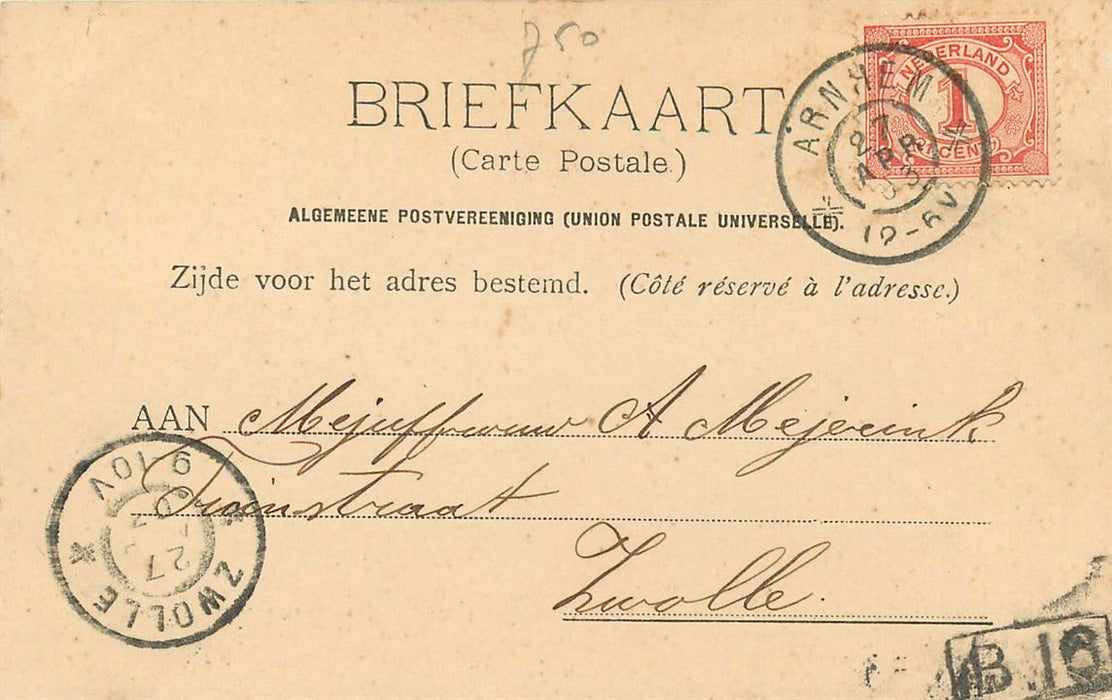 750
BRIEFKAART
(Carte Postale.)
ALGEMEENE POSTVEREENIGING (UNION POSTALE UNIVERSELLE).
Zijde voor het adres bestemd. (Côté réservé à l'adresse.)
NEDERLAND
1
CENT
ARNHEM
27
APR
12-6V
AAN Mejuffrouw A Mejerink
Tuinstraat
Zwolle.
9-10V
27
ZWOLLE
B.16